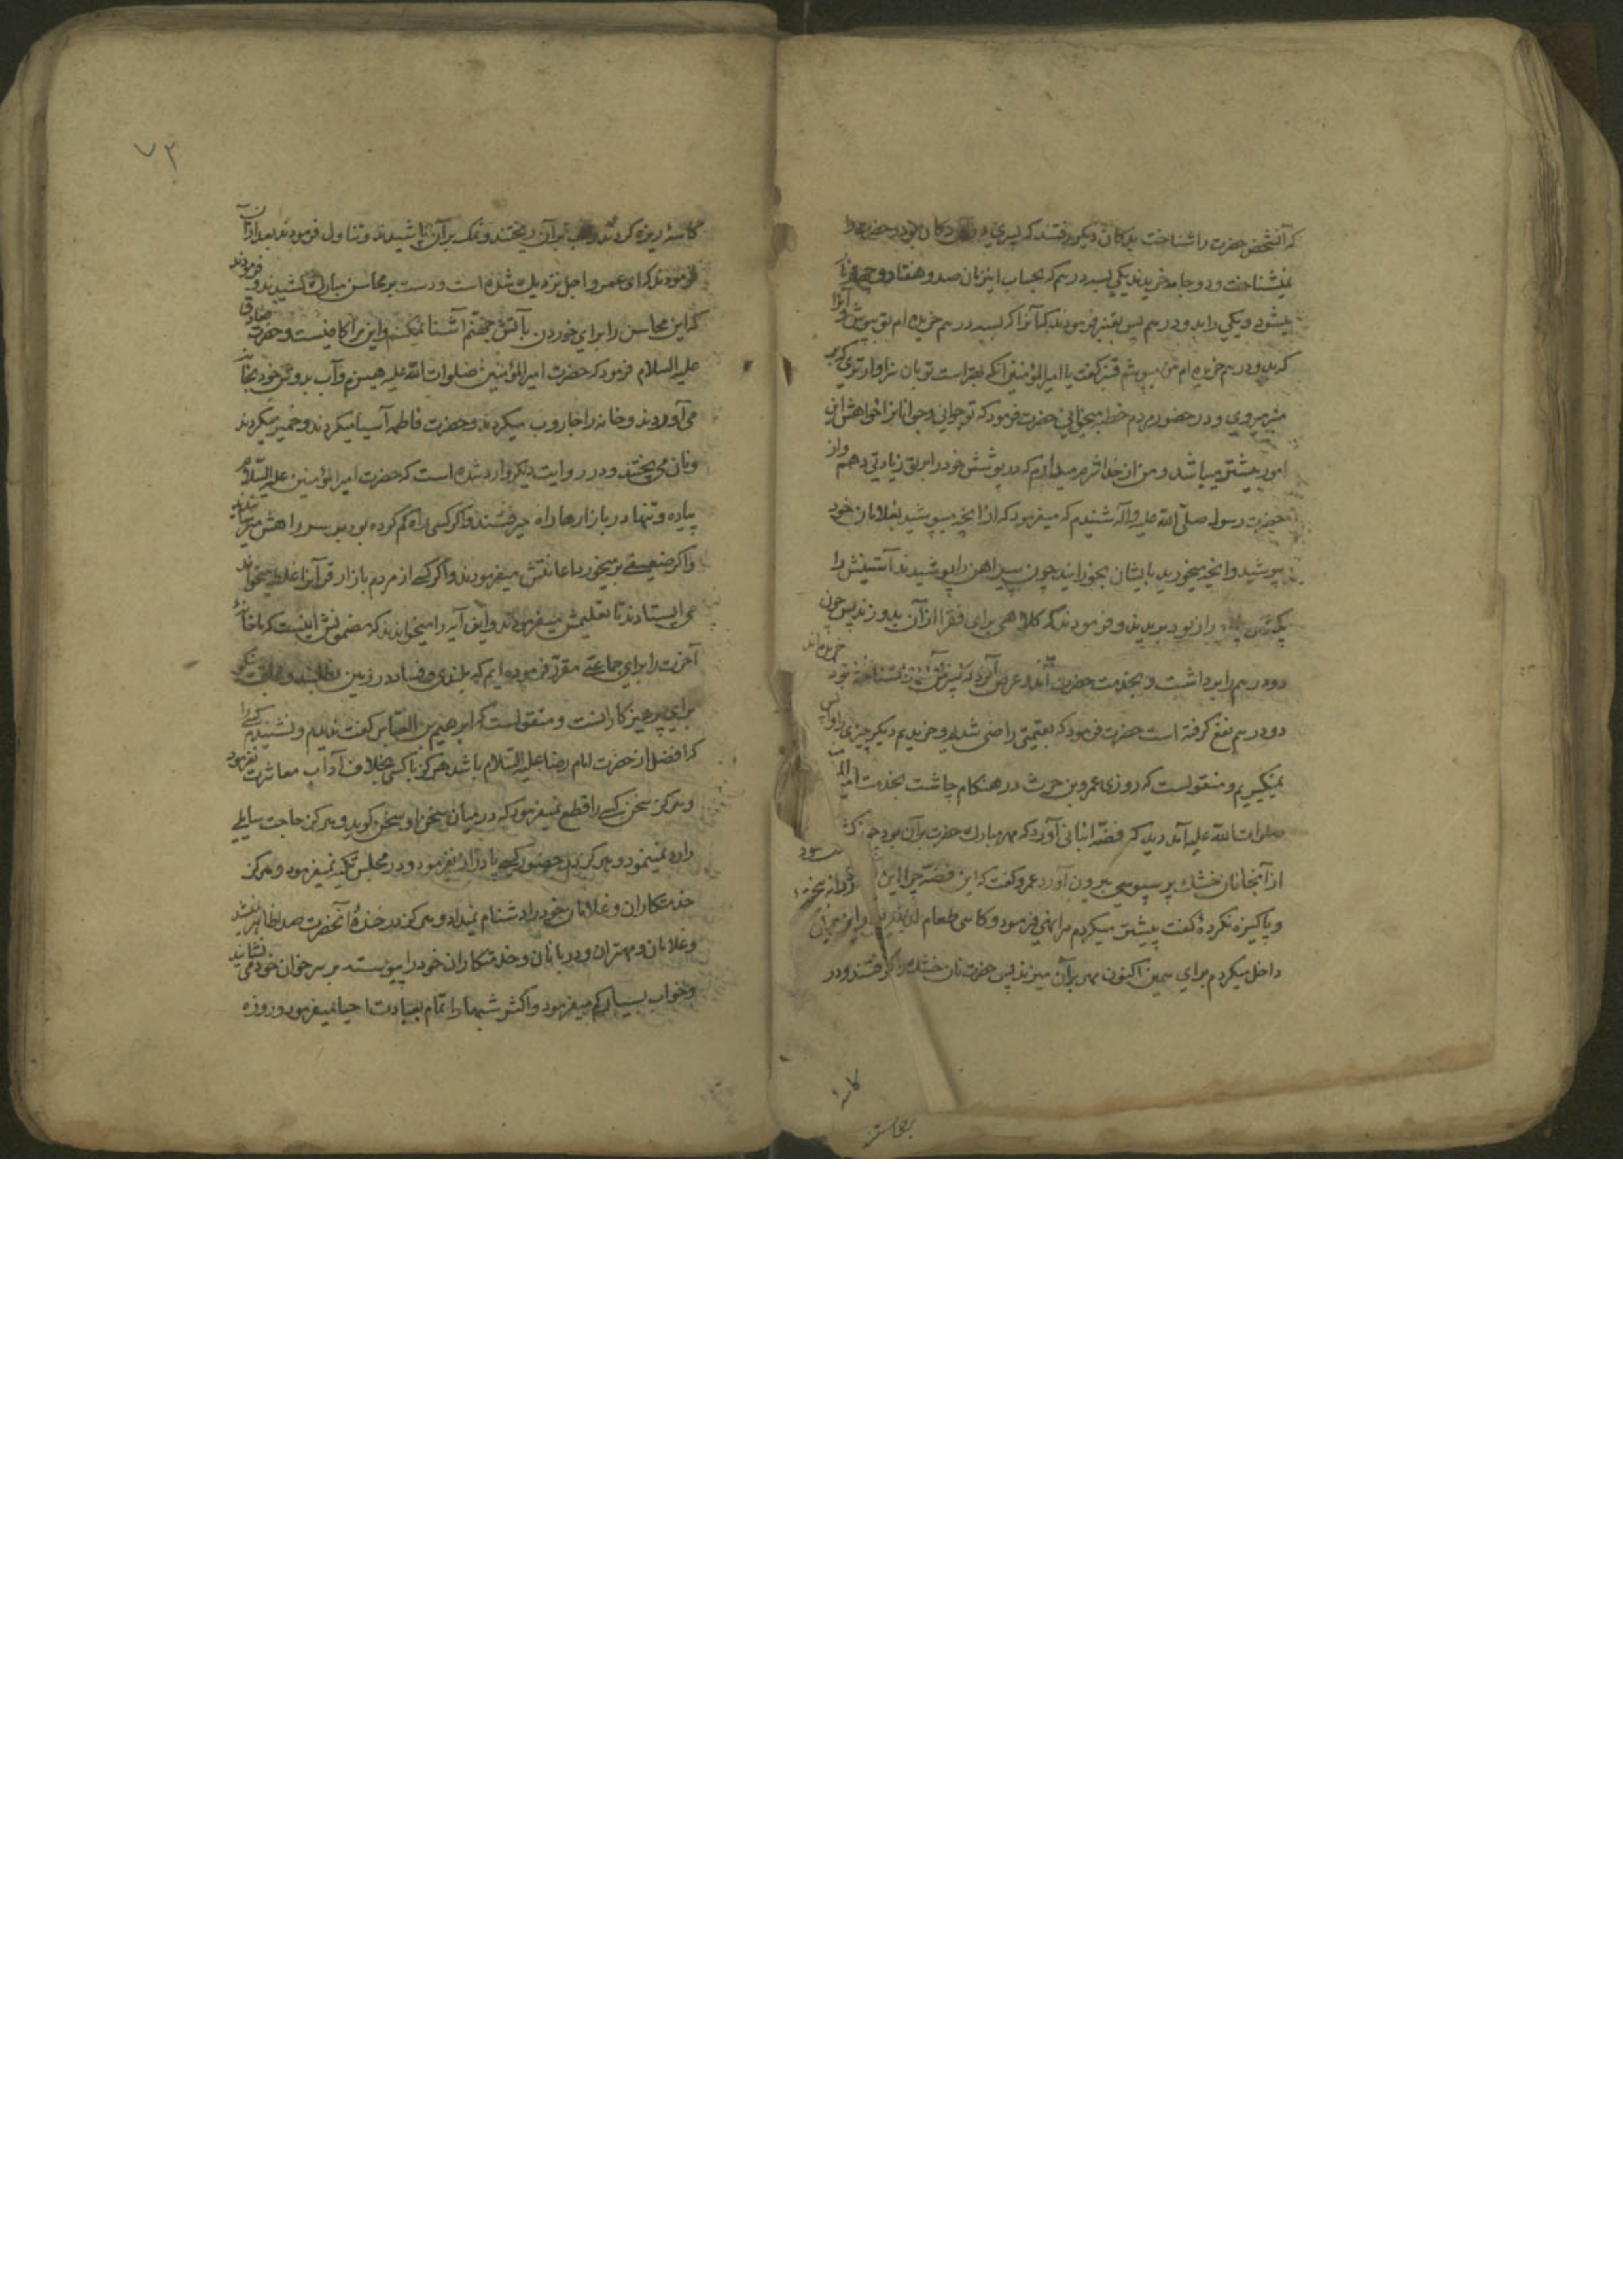 که آنشخص حضرت را شناخت بدکان دیکر رفتند که پسری در دکان بود و حضرت را
نمیشناخت و دو جامه خریدند یکی بسه درهم که بحساب اینزمان صد و هفتاد و
میشود و یکی را بدو درهم پس بقنبر فرمودند که آنرا که بسه درهم خریده ام تو بپوش و آنرا
که بدو درهم خریده ام من میپوشم قنبر کفت یا امیرالمؤمنین آنکه بهتر است تو بآن سزاوارتری که بر
منبر میروی و در حضور مردم خطبه میخوانی حضرت فرمود که تو جوانی و جوانانرا خواهش این
امور بیشتر میباشد و من از خدا شرم میدارم که در پوشش خود را بر تو زیادتی دهم و از
حضرت رسول صلّی الله علیه وآله شنیدم که میفرمود که از آنچه میپوشید بغلامان خود
بپوشید و آنچه میخورید بایشان بخورانید چون پیراهن را پوشیدند آستینش را
را زیاد بود بریدند و فرمودند که کلاهی برای فقرا از آن بدوزند پس چون
دو درهم را برداشت و بخدمت حضرت آمد و عرض کرد که پسر من شما را نشناخته بود
خریده اند
دو درهم نفع کرفته است حضرت فرمود که بقیمتی راضی شدیم و خریدیم دیکر چیزی را واپس
نمیکیریم و منقولست که روزی عمرو بن حریث در هنکام چاشت بخدمت
صلوات الله علیه آمد دید که فضّه انبانی آورد که مهر مبارک حضرت بر آن بود چون
از آنجا نان خشک پر سبوسی بیرون آورد عمرو کفت که ای فضّه چرا این
و پاکیزه نکردهٔ کفت پیشتر میکردم مرا نهی فرمود و کاهی طعام لذیذی
داخل میکردم برای همین اکنون مهر بر آن میزند پس حضرت نان خشک را کرفتند و در
کاسهٔ
۷۳
کاسهٔ ریزه کردند و آب بر آن ریختند و نمک بر آن پاشیدند و تناول فرمودند بعد از آن
فرمودند که ای عمرو اجل نزدیک شده است و دست بر محاسن مبارک کشیدند و فرمودند
که این محاسن را برای خوردن با آتش جهنّم آشنا نمیکنم و این مرا کافیست و حضرت صادق
علیه السلام فرمود که حضرت امیرالمؤمنین صلوات الله علیه هیزم و آب بدوش خود بخانه
می آوردند و خانه را جاروب میکردند و حضرت فاطمه آسیا میکردند و خمیر میکردند
و نان می پختند و در روایت دیکر وارد شده است که حضرت امیرالمؤمنین علیه السّلام
پیاده و تنها در بازارها راه میرفتند و اکر کسی راه کم کرده بود بر سر راهش میرسانیدند
و اکر ضعیفی بر میخورد اعانتش میفرمودند و اکر کسی از مردم بازار قرآنرا غلط میخواند
می ایستادند تا تعلیمش میفرمودند و این آیه را میخواندند که مضمونش اینست که ما خانهٔ
آخرت را برای جماعتی مقرّر فرموده ایم که بلندی و فساد در زمین نطلبند و عاقبت نیکو
برای پرهیزکارانست و منقولست که ابرهیم بن العبّاس کفت ندیدم و نشنیدم کسی را
که افضل از حضرت امام رضا علیه السّلام باشد هرکز با کسی بخلاف آداب معاشرت نفرمود
و هرکز سخن کسی را قطع نمیفرمود که در میان سخن او سخن کوید و هرکز حاجت سایلی
رد نمینمود و هرکز در حضور کسی پا دراز نفرمود و در مجلس تکیه نمیفرمود و هرکز
خدمتکاران و غلامان خود را دشنام نمیداد و هرکز در خندهٔ آنحضرت صدا ظاهر نمیشد
و غلامان و مهتران و دربانان و خدمتکاران خود را پیوسته بر سر خوان خود می نشانید
و خواب بسیار کم میفرمود و اکثر شبها را تمام بعبادت احیا میفرمود و روزه